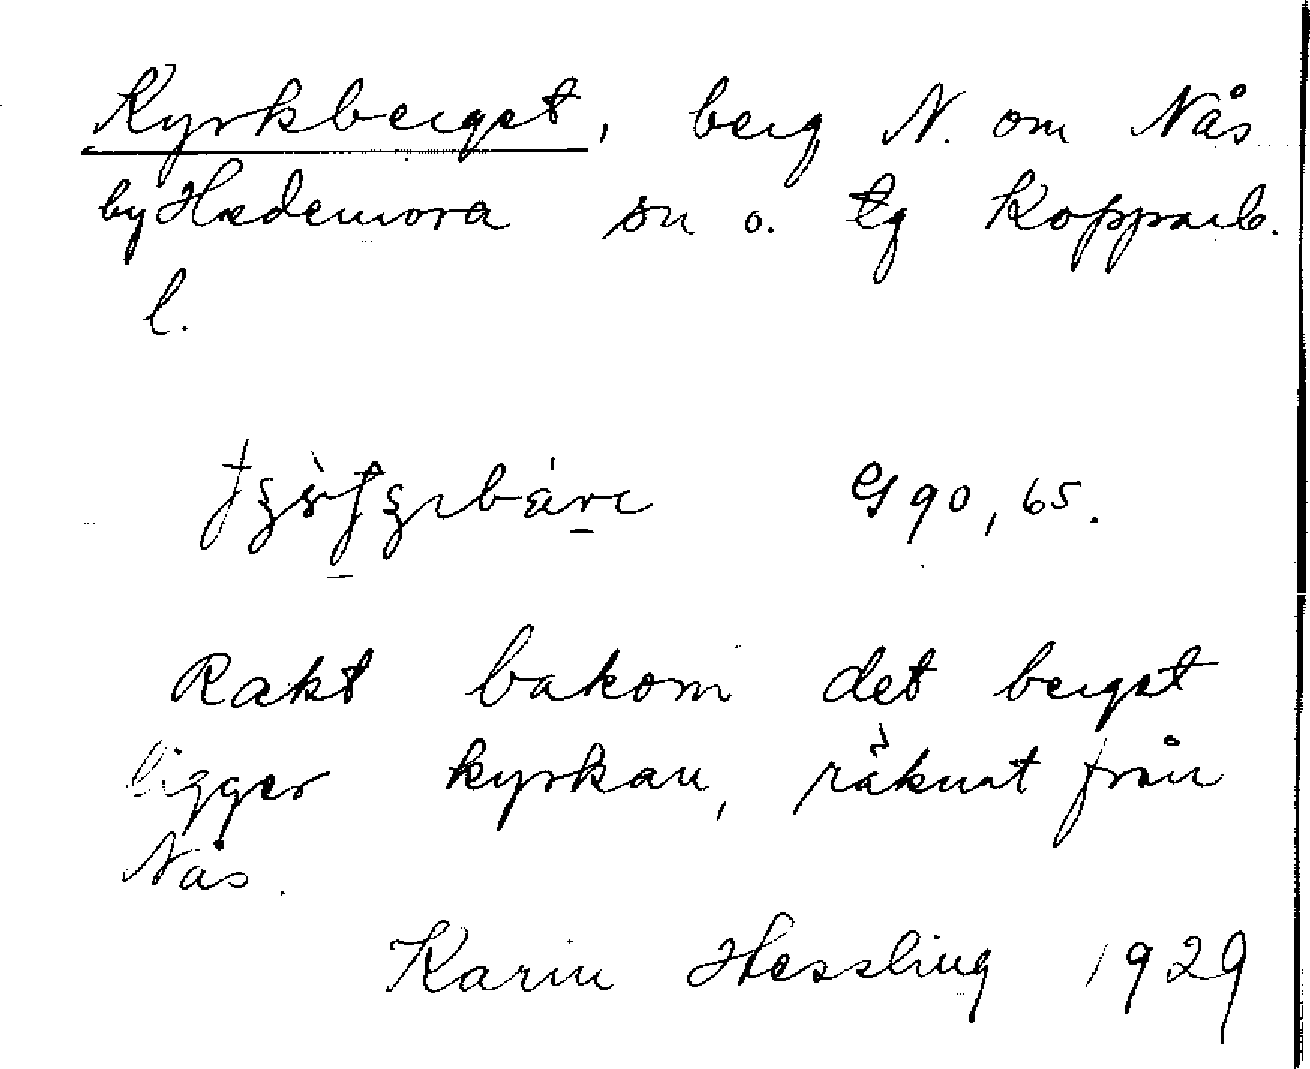 Kyrkberget, berg N. om Nås
by Hedemora sn o. tg Kopparb.
l.
G 90, 65.
Rakt bakom det berget
ligger kyrkan, räknat från
Nås.
Karin Hessling 1929